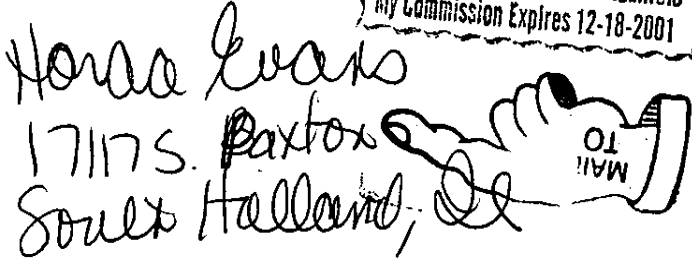 My Commission Expires 12-18-2001
Evans
17117 S. Paxton
South Holland, Il
MAIL
TO